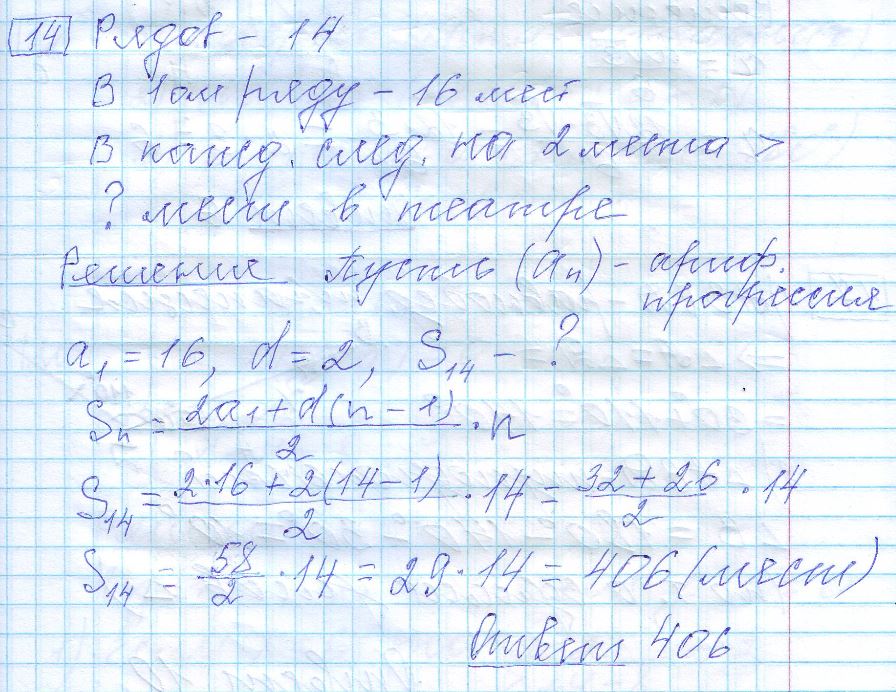 14 Рядов - 14
В 1ом ряду - 16 мест
В кажд. след. на 2 места >
? мест в театре
Решение Пусть (aₙ) - ариф.
прогрессия
a₁ = 16, d = 2, S₁₄ - ?
Sₙ = (2a₁ + d(n - 1))/2 · n
S₁₄ = (2·16 + 2(14 - 1))/2 · 14 = (32 + 26)/2 · 14
S₁₄ = 58/2 · 14 = 29 · 14 = 406 (мест)
Ответ 406